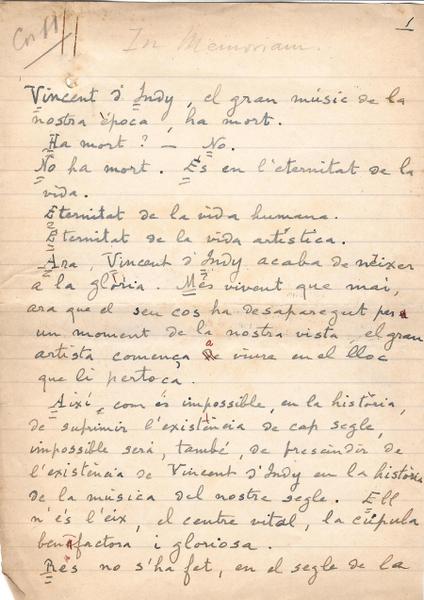 1
In Memoriam.
Vincent d'Indy, el gran músic de la
nostra època, ha mort.
Ha mort? — No.
No ha mort. És en l'eternitat de la
vida.
Eternitat de la vida humana.
Eternitat de la vida artística.
Ara, Vincent d'Indy acaba de nèixer
a la glòria. Més vivent que mai,
ara que el seu cos ha desaparegut per
un moment de la nostra vista, el gran
artista comença a viure en el lloc
que li pertoca.
Així, com és impossible, en la història,
de suprimir l'existència de cap segle,
impossible serà, també, de prescindir de
l'existència de Vincent d'Indy en la història
de la música del nostre segle. Ell
n'és l'eix, el centre vital, la cúpula
benefactora i gloriosa.
Rés no s'ha fet, en el segle de la